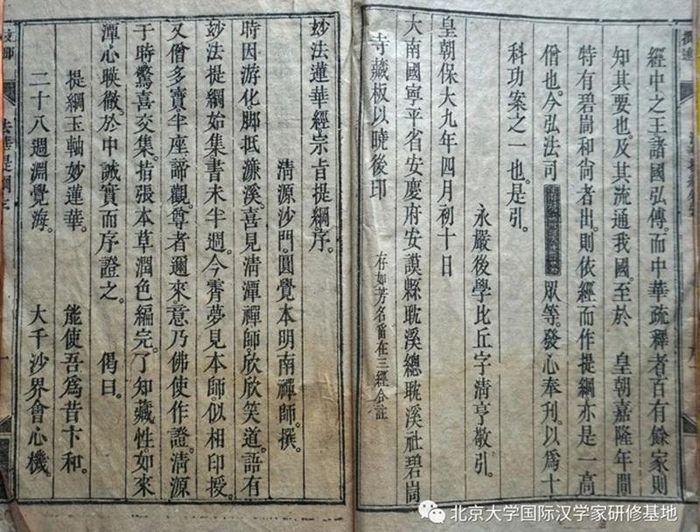 經中之王諸國弘傳。而中華疏釋者百有餘家則
知其要也。及其流通我國。至於 皇朝嘉隆年間
特有碧峝和尚者出。則依經而作提綱亦是一高
僧也。今弘法司 眾等。發心奉刊。以為十
科功案之一也。是引。
永嚴後學比丘字清亨敬引。
皇朝保大九年四月初十日
大南國寧平省安慶府安謨縣耽溪總耽溪社碧峝
寺藏板以曉後印
存如芳名留在三經合註
妙法蓮華經宗旨提綱序。
清源沙門。圓覺本明南禪師。撰。
時因游化脚抵濂溪。喜見清潭禪師。欣欣笑道。語有
妙法提綱始集書未半週。今霄夢見本師。似相印授。
又僧多寶半座諦觀。尊者邇來。意乃佛使作證。清源
于時驚喜交集。揩張本草潤色編完。了知藏性如來
潭心映徹於中誠實而序證之。 偈曰。
提綱玉軸妙蓮華。 能使吾為昔卞和。
二十八週淵覺海。 大千沙界會心機。
北京大学国际汉学家研修基地